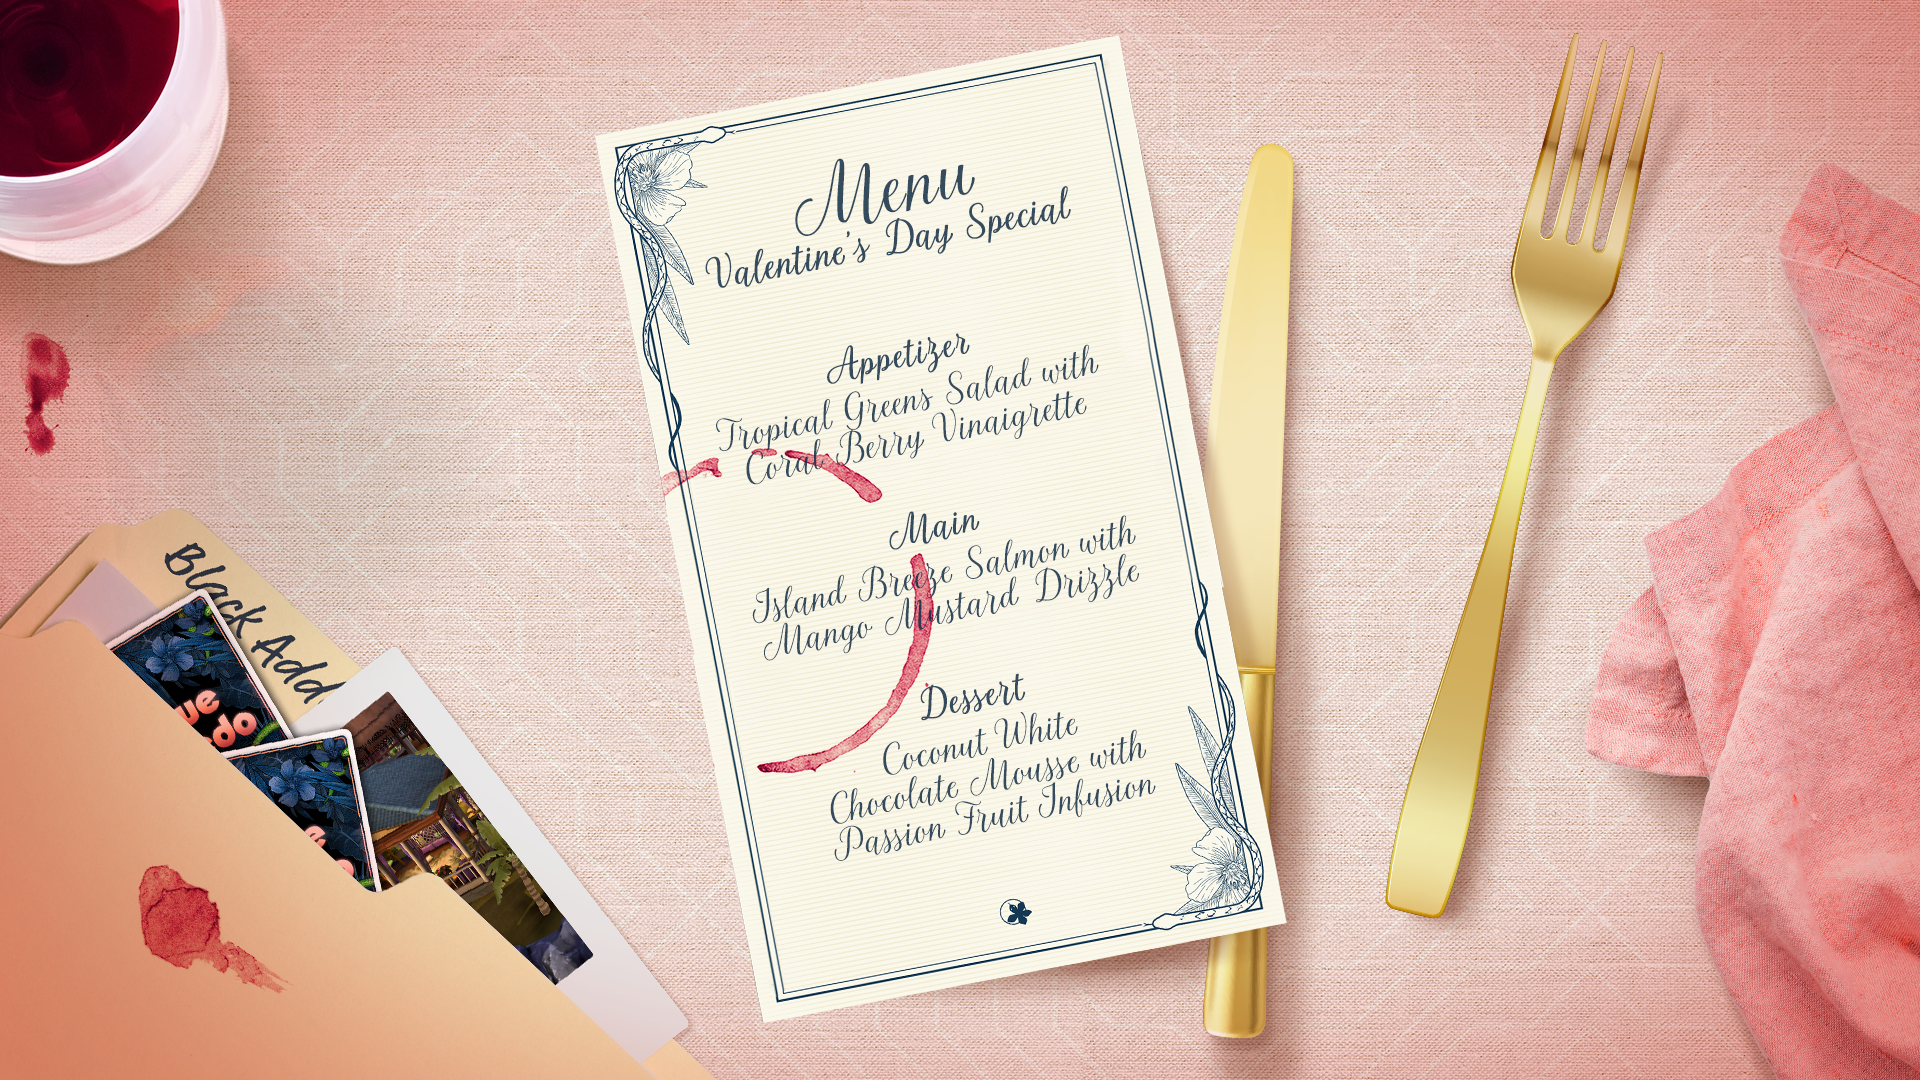 Menu
Valentine's Day Special
Appetizer
Tropical Greens Salad with
Coral Berry Vinaigrette
Main
Island Breeze Salmon with
Mango Mustard Drizzle
Dessert
Coconut White
Chocolate Mousse with
Passion Fruit Infusion
Black Add
ue
do